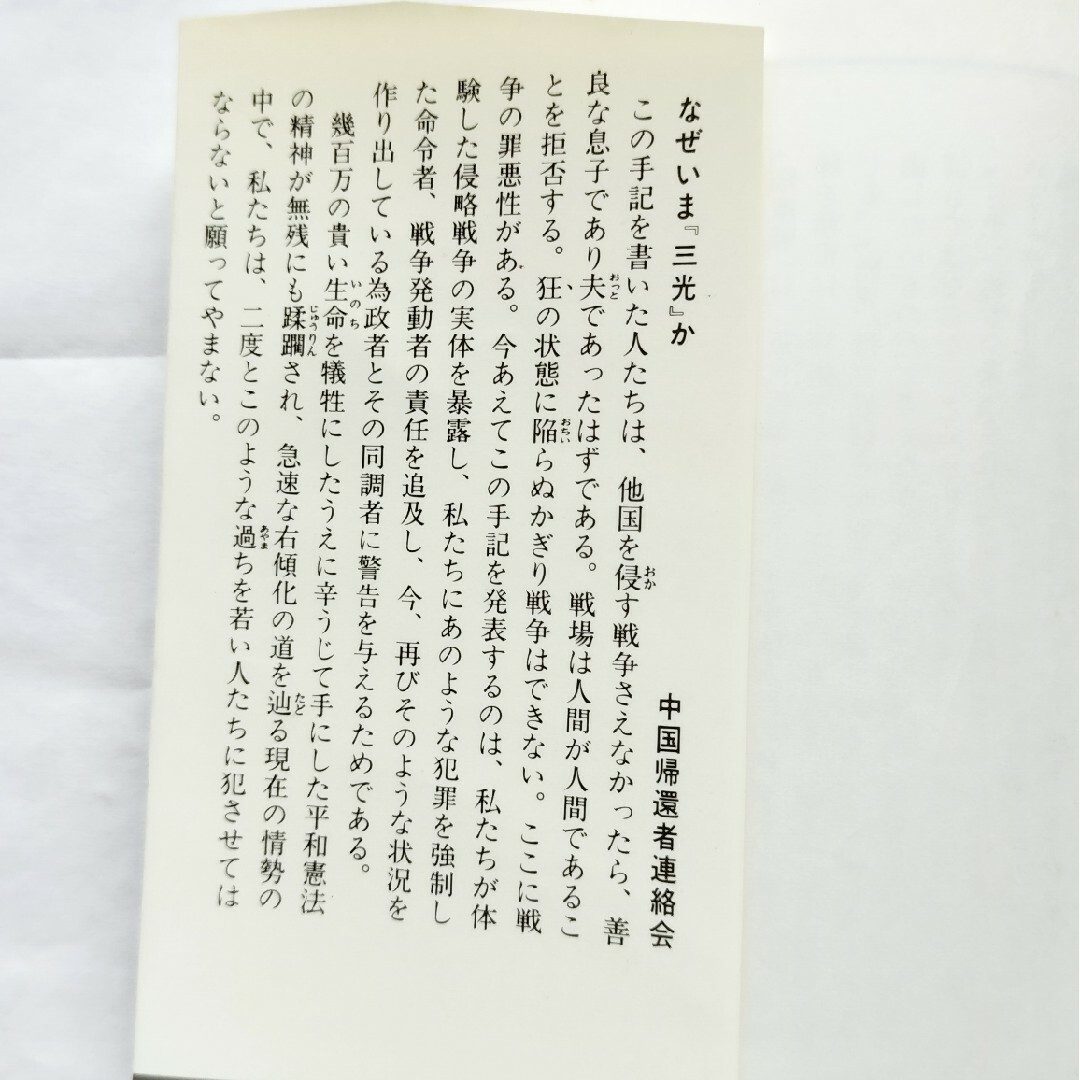 なぜいま『三光』か
中国帰還者連絡会
この手記を書いた人たちは、他国を侵す戦争さえなかったら、善
良な息子であり夫であったはずである。戦場は人間が人間であるこ
とを拒否する。狂の状態に陥らぬかぎり戦争はできない。ここに戦
争の罪悪性がある。今あえてこの手記を発表するのは、私たちが体
験した侵略戦争の実体を暴露し、私たちにあのような犯罪を強制し
た命令者、戦争発動者の責任を追及し、今、再びそのような状況を
作り出している為政者とその同調者に警告を与えるためである。
幾百万の貴い生命を犠牲にしたうえに辛うじて手にした平和憲法
の精神が無残にも蹂躙され、急速な右傾化の道を辿る現在の情勢の
中で、私たちは、二度とこのような過ちを若い人たちに犯させては
ならないと願ってやまない。